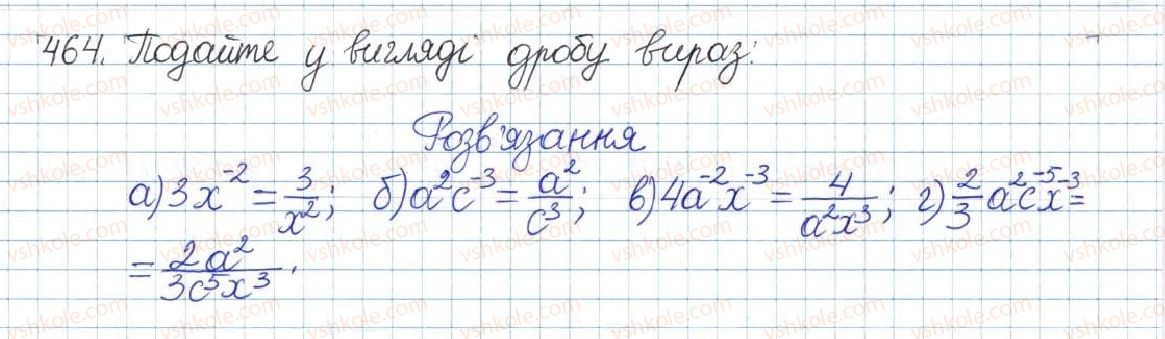 464. Подайте у вигляді дробу вираз:
Розв'язання
а) 3x⁻² = 3/x²; б) a²c⁻³ = a²/c³; в) 4a⁻²x⁻³ = 4/(a²x³); г) 2/3 a²c⁻⁵x⁻³ =
= 2a²/(3c⁵x³).
vshkole.com